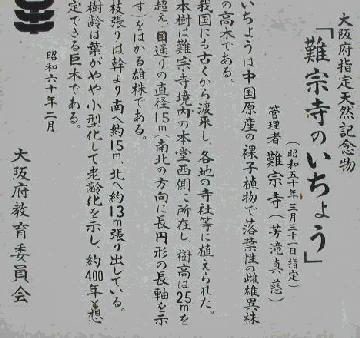 大阪府指定天然記念物
「難宗寺のいちょう」
(昭和五十年三月三十一日指定)
管理者 難宗寺(芳滝真慈)
いちょうは中国原産の裸子植物で、落葉性の雌雄異株
の高木である。
我国にも古くから渡来し、各地の寺社等に植えられた。
本樹は難宗寺境内の本堂西側に所在し、樹高は25mを
超え、目通りの直径1.5m、南北の方向に長円形の長軸を示
す
はかる雄株である。
枝張りは幹より南へ約15m、北へ約13m張り出している。
樹齢は葉がやや小型化して老齢化を示し、約400年と想
定できる巨木である。
昭和六十年二月
大阪府教育委員会